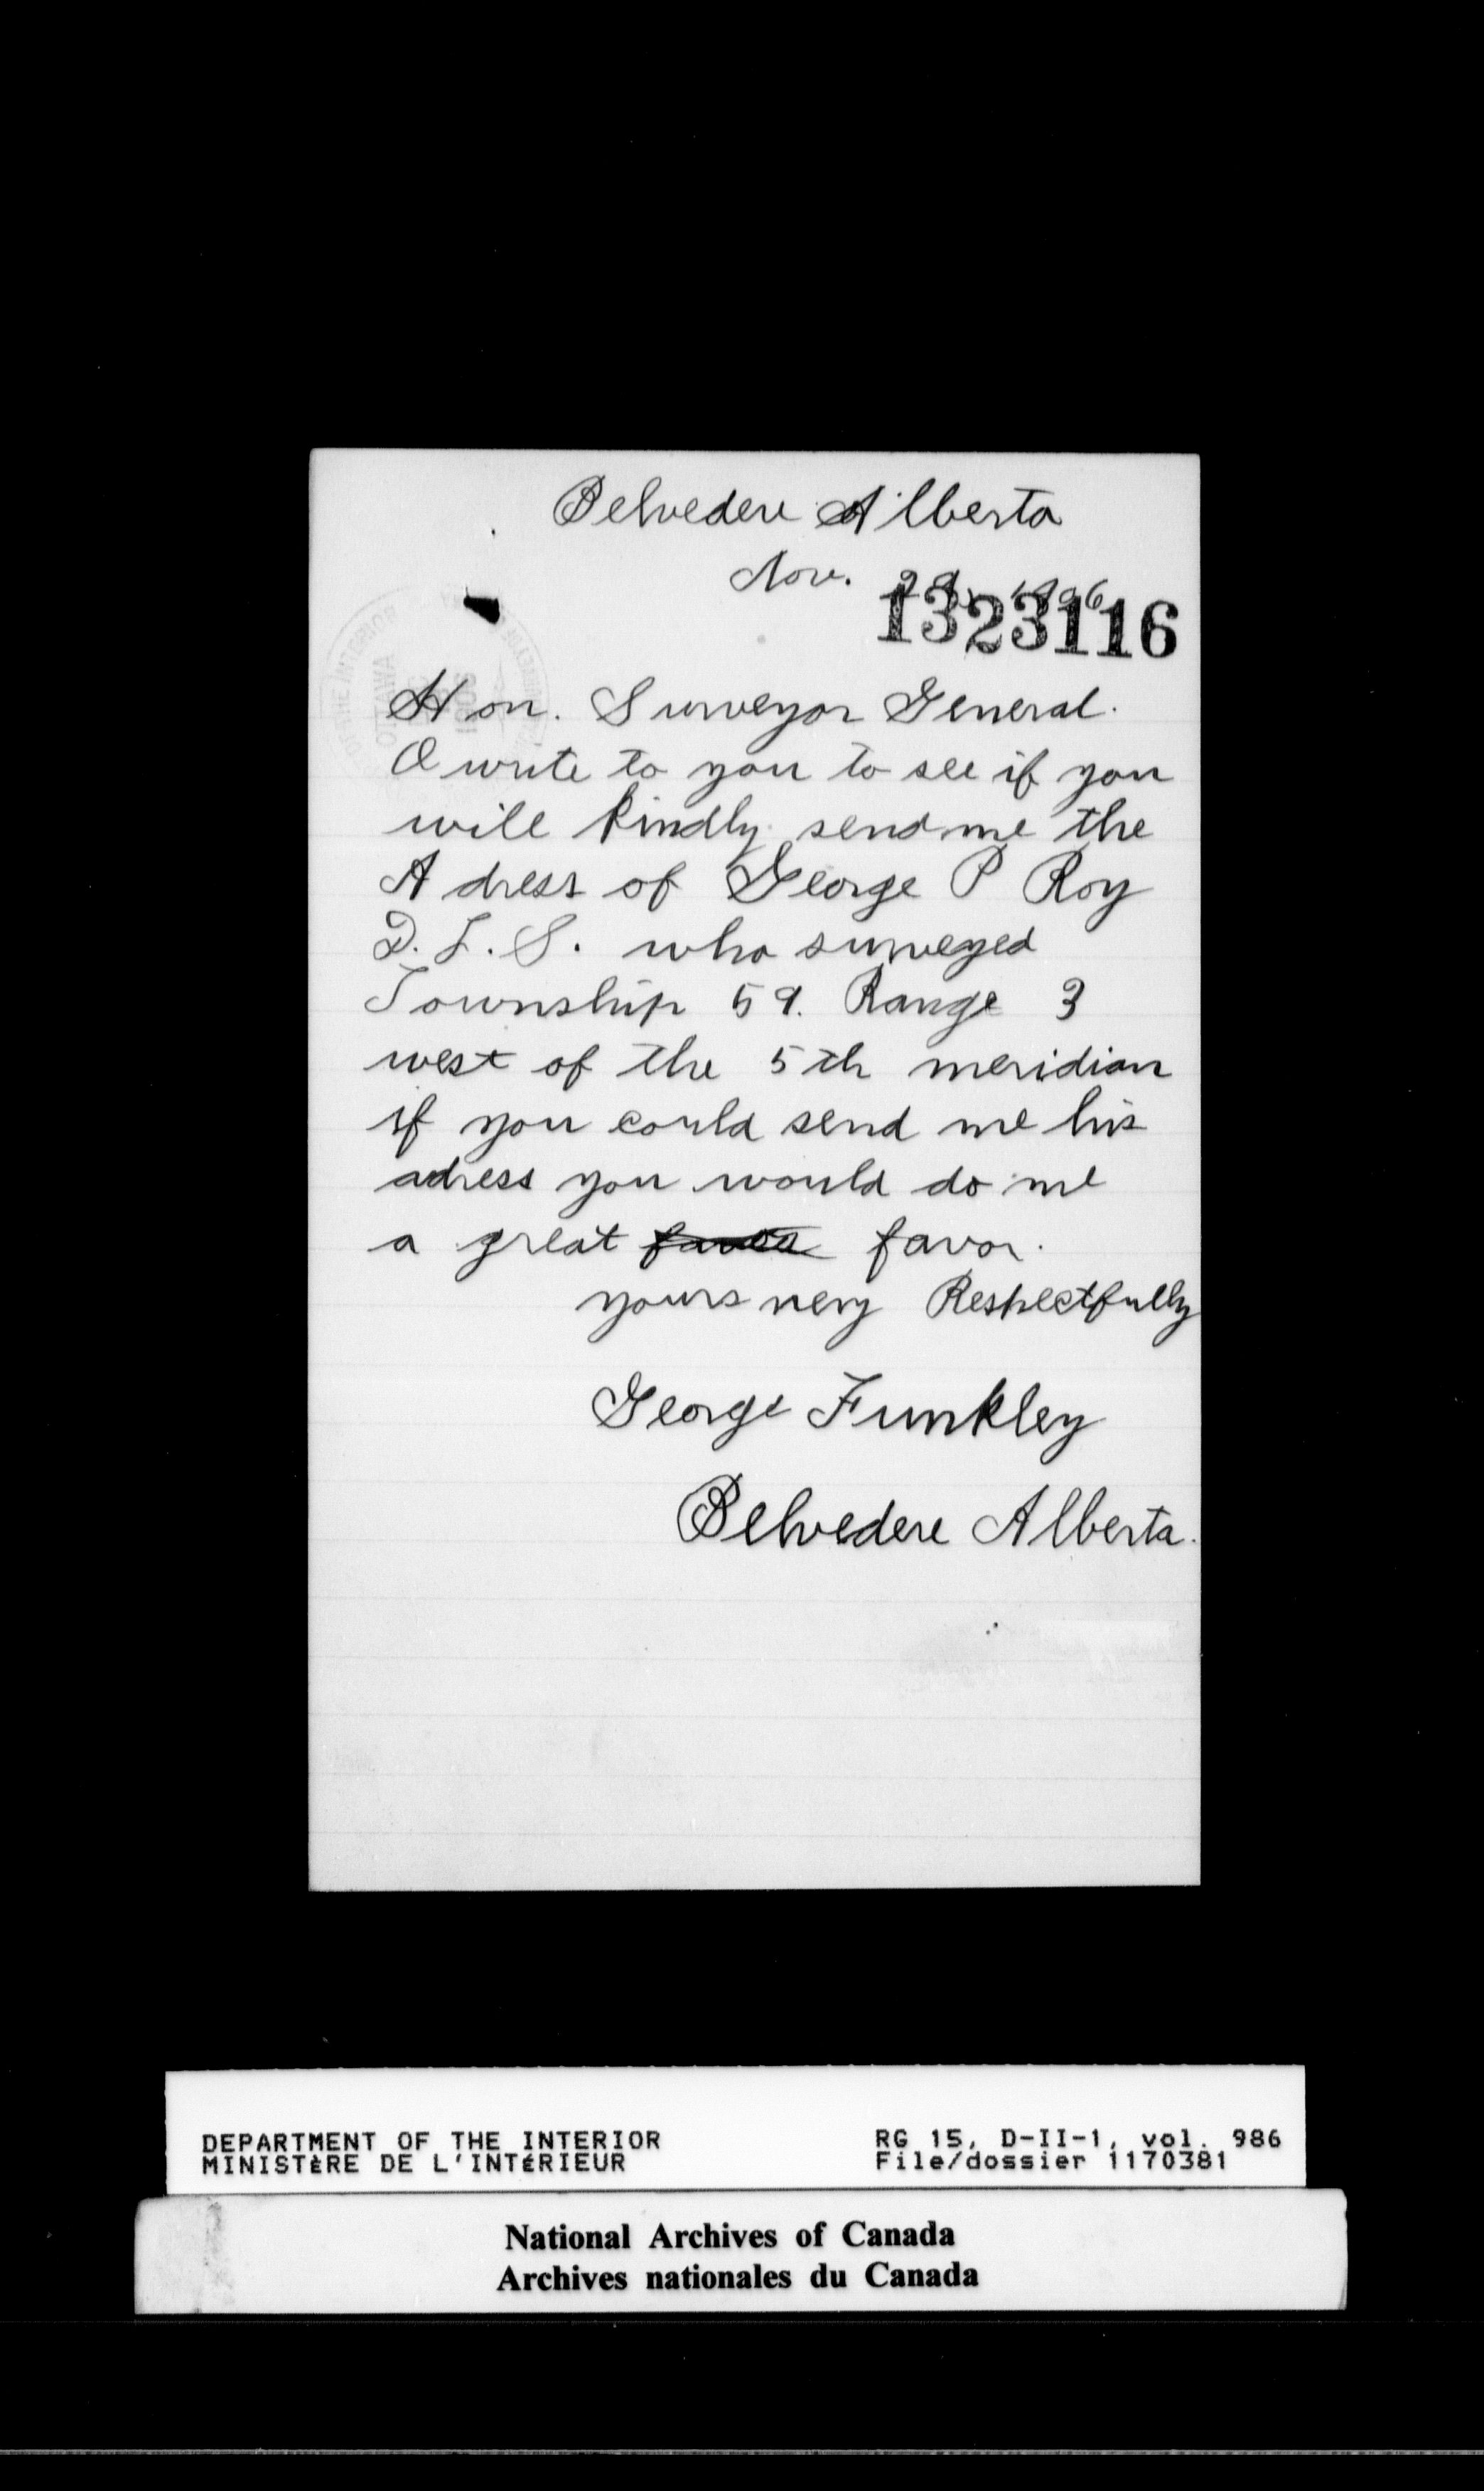 Belvedere Alberta
Nov. 1906
1323116
Hon. Surveyor General.
I write to you to see if you
will kindly send me the
Adress of George P Roy
D. L. S. who surveyed
Township 59. Range 3
west of the 5th meridian
if you could send me his
adress you would do me
a great favor.
yours very Respectfully
George Funkley
Belvedere Alberta.
DEPARTMENT OF THE INTERIOR
MINISTÈRE DE L'INTÉRIEUR
RG 15, D-II-1, vol. 986
File/dossier 1170381
National Archives of Canada
Archives nationales du Canada